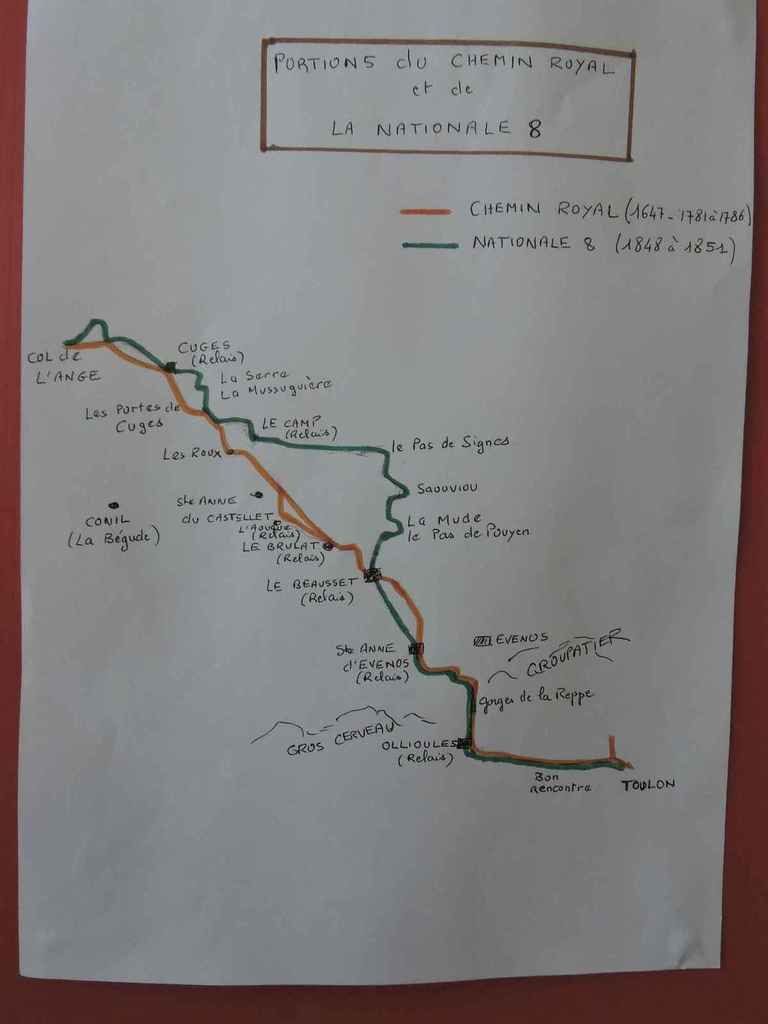 PORTIONS du CHEMIN ROYAL
et de
LA NATIONALE 8
CHEMIN ROYAL (1647-1781 à 1786)
NATIONALE 8 (1848 à 1851)
COL de
L'ANGE
CUGES
(Relais)
La Serre
La Mussuguière
Les Portes de
Cuges
LE CAMP
(Relais)
le Pas de Signes
Les Roux
Saouviou
Ste ANNE
du CASTELLET
CONIL
(La Bégude)
La Mude
le Pas de Pouyen
(Relais)
LE BRULAT
(Relais)
LE BEAUSSET
(Relais)
EVENOS
Ste ANNE
d'EVENOS
(Relais)
CROUPATIER
gorges de la Reppe
GROS CERVEAU
OLLIOULES
(Relais)
Bon
rencontre
TOULON